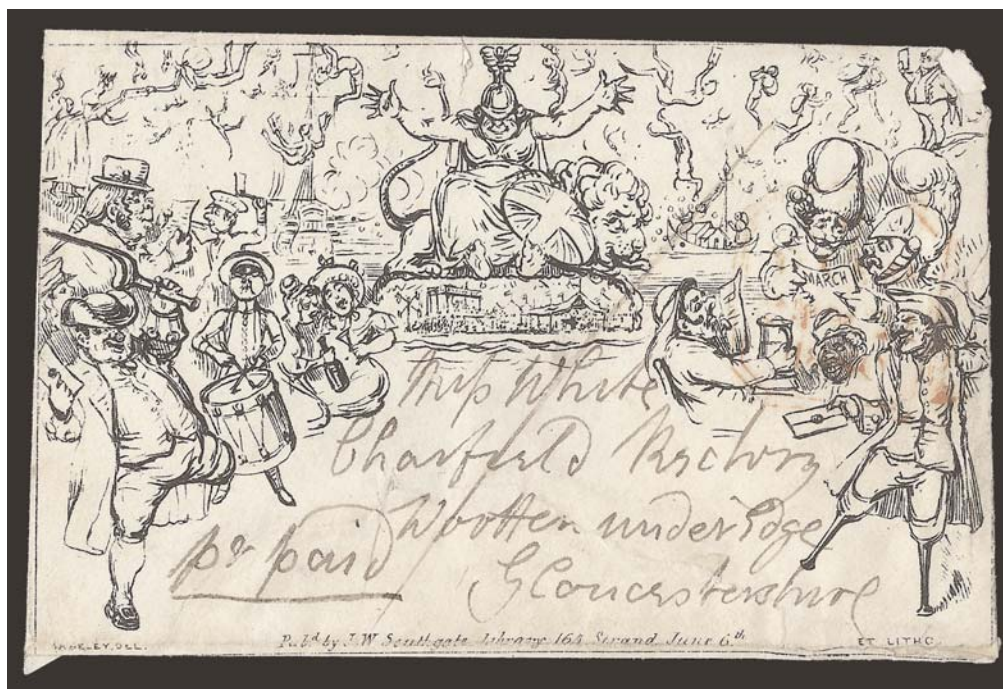 MARCH
Miss White
Charfield Rectory
Wootten under Edge
Gloucestershire
pr paid
Pubd by J.W Southgate Library 164 Strand June 6th
ET LITHO.